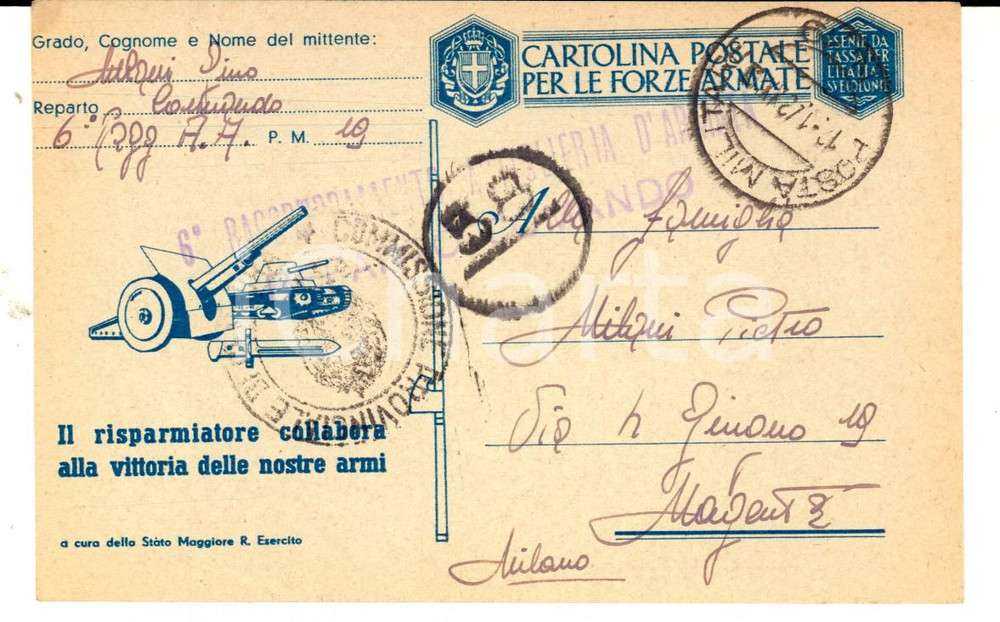 Grado, Cognome e Nome del mittente:
Milani Dino
Reparto Comando
6° Ragg A.A. P. M. 19
CARTOLINA POSTALE
PER LE FORZE ARMATE
ESENTE DA
TASSA PER
L'ITALIA E
SUE COLONIE
POSTA MILITARE
6° RAGGRUPPAMENTO ARTIGLIERIA D'ARMATA
COMANDO
COMMISSIONE PROVINCIALE DI
Alla famiglia
Milani Pietro
Via 19
Magenta
Milano
Il risparmiatore collabora
alla vittoria delle nostre armi
a cura dello Stato Maggiore R. Esercito
charta